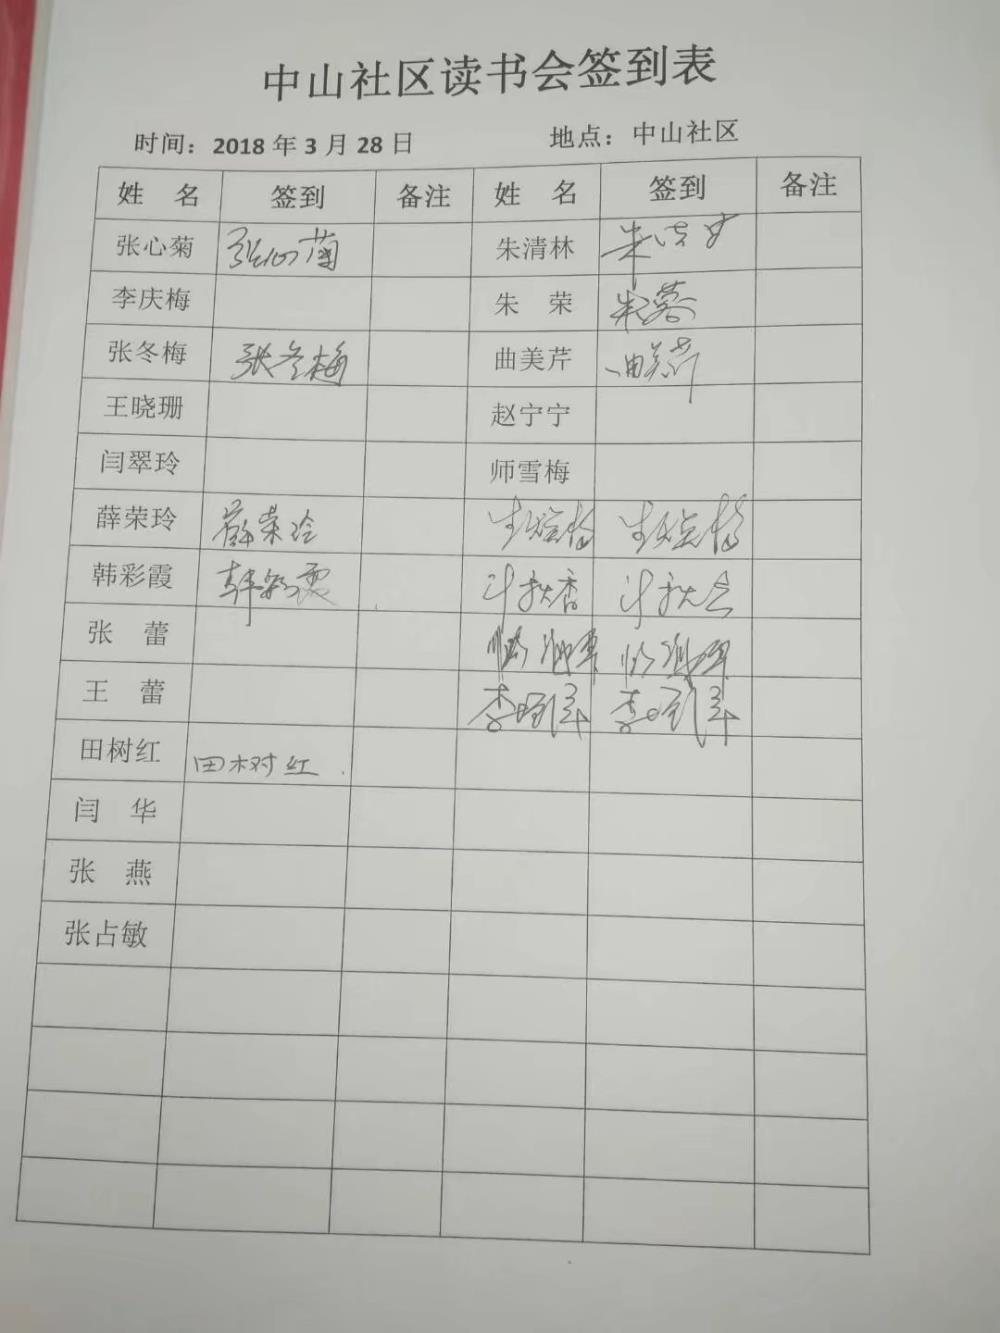 中山社区读书会签到表
时间：2018年3月28日 地点：中山社区
姓 名 签到 备注 姓 名 签到 备注
张心菊 张心菊 朱清林
李庆梅 朱 荣 朱荣
张冬梅 张冬梅 曲美芹 曲美芹
王晓珊 赵宁宁
闫翠玲 师雪梅
薛荣玲 薛荣玲
韩彩霞 韩彩霞
张 蕾
王 蕾
田树红 田树红
闫 华
张 燕
张占敏